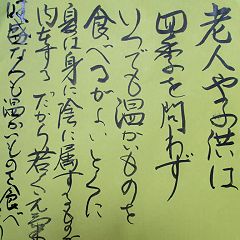 老人や子供は
四季を問わず
いつでも温かいものを
食べるがよいとくに
夏は身に陰に属するものが
内在するだから若くて元気
時でなくも温かいものを食べ